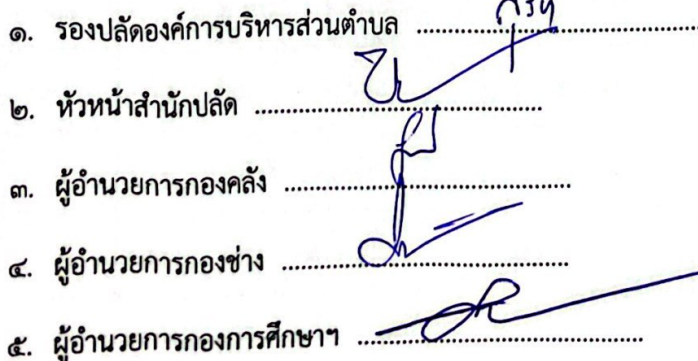 ๑. รองปลัดองค์การบริหารส่วนตำบล
๒. หัวหน้าสำนักปลัด
๓. ผู้อำนวยการกองคลัง
๔. ผู้อำนวยการกองช่าง
๕. ผู้อำนวยการกองการศึกษาฯ